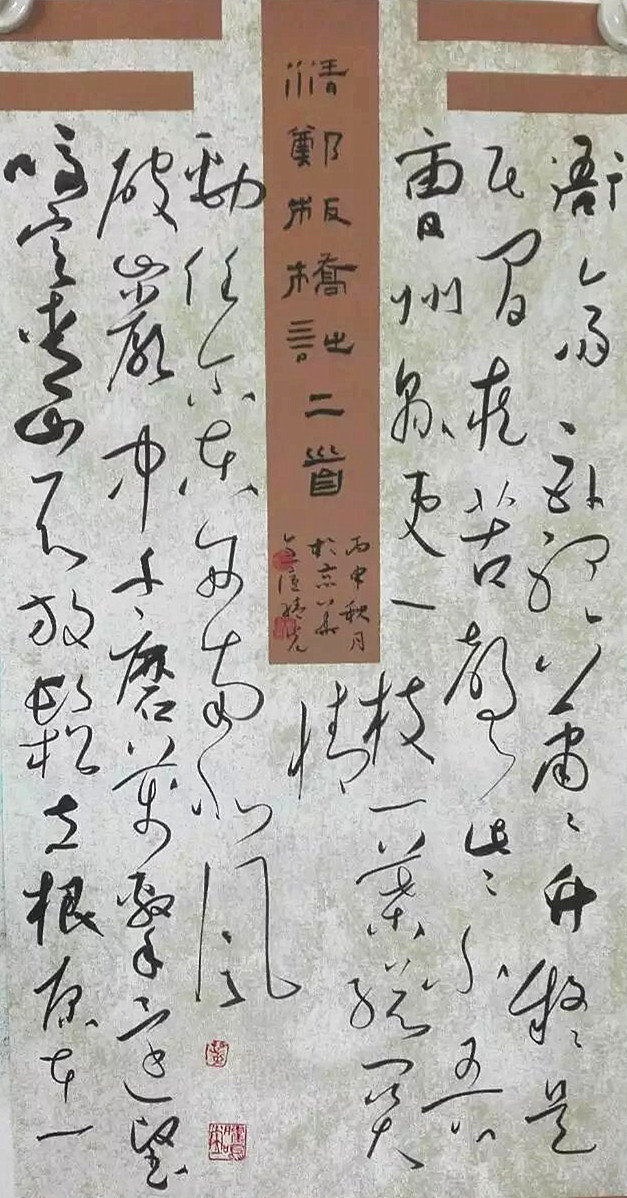 衙齋卧聽蕭蕭竹疑是
民間疾苦聲些小吾
曹州縣吏一
枝一葉總關
情
清鄭板橋詩二首
丙申秋月
於京華
咬定青山不放鬆立根原在
破巖中千磨萬擊還堅
勁任尔東西南北風